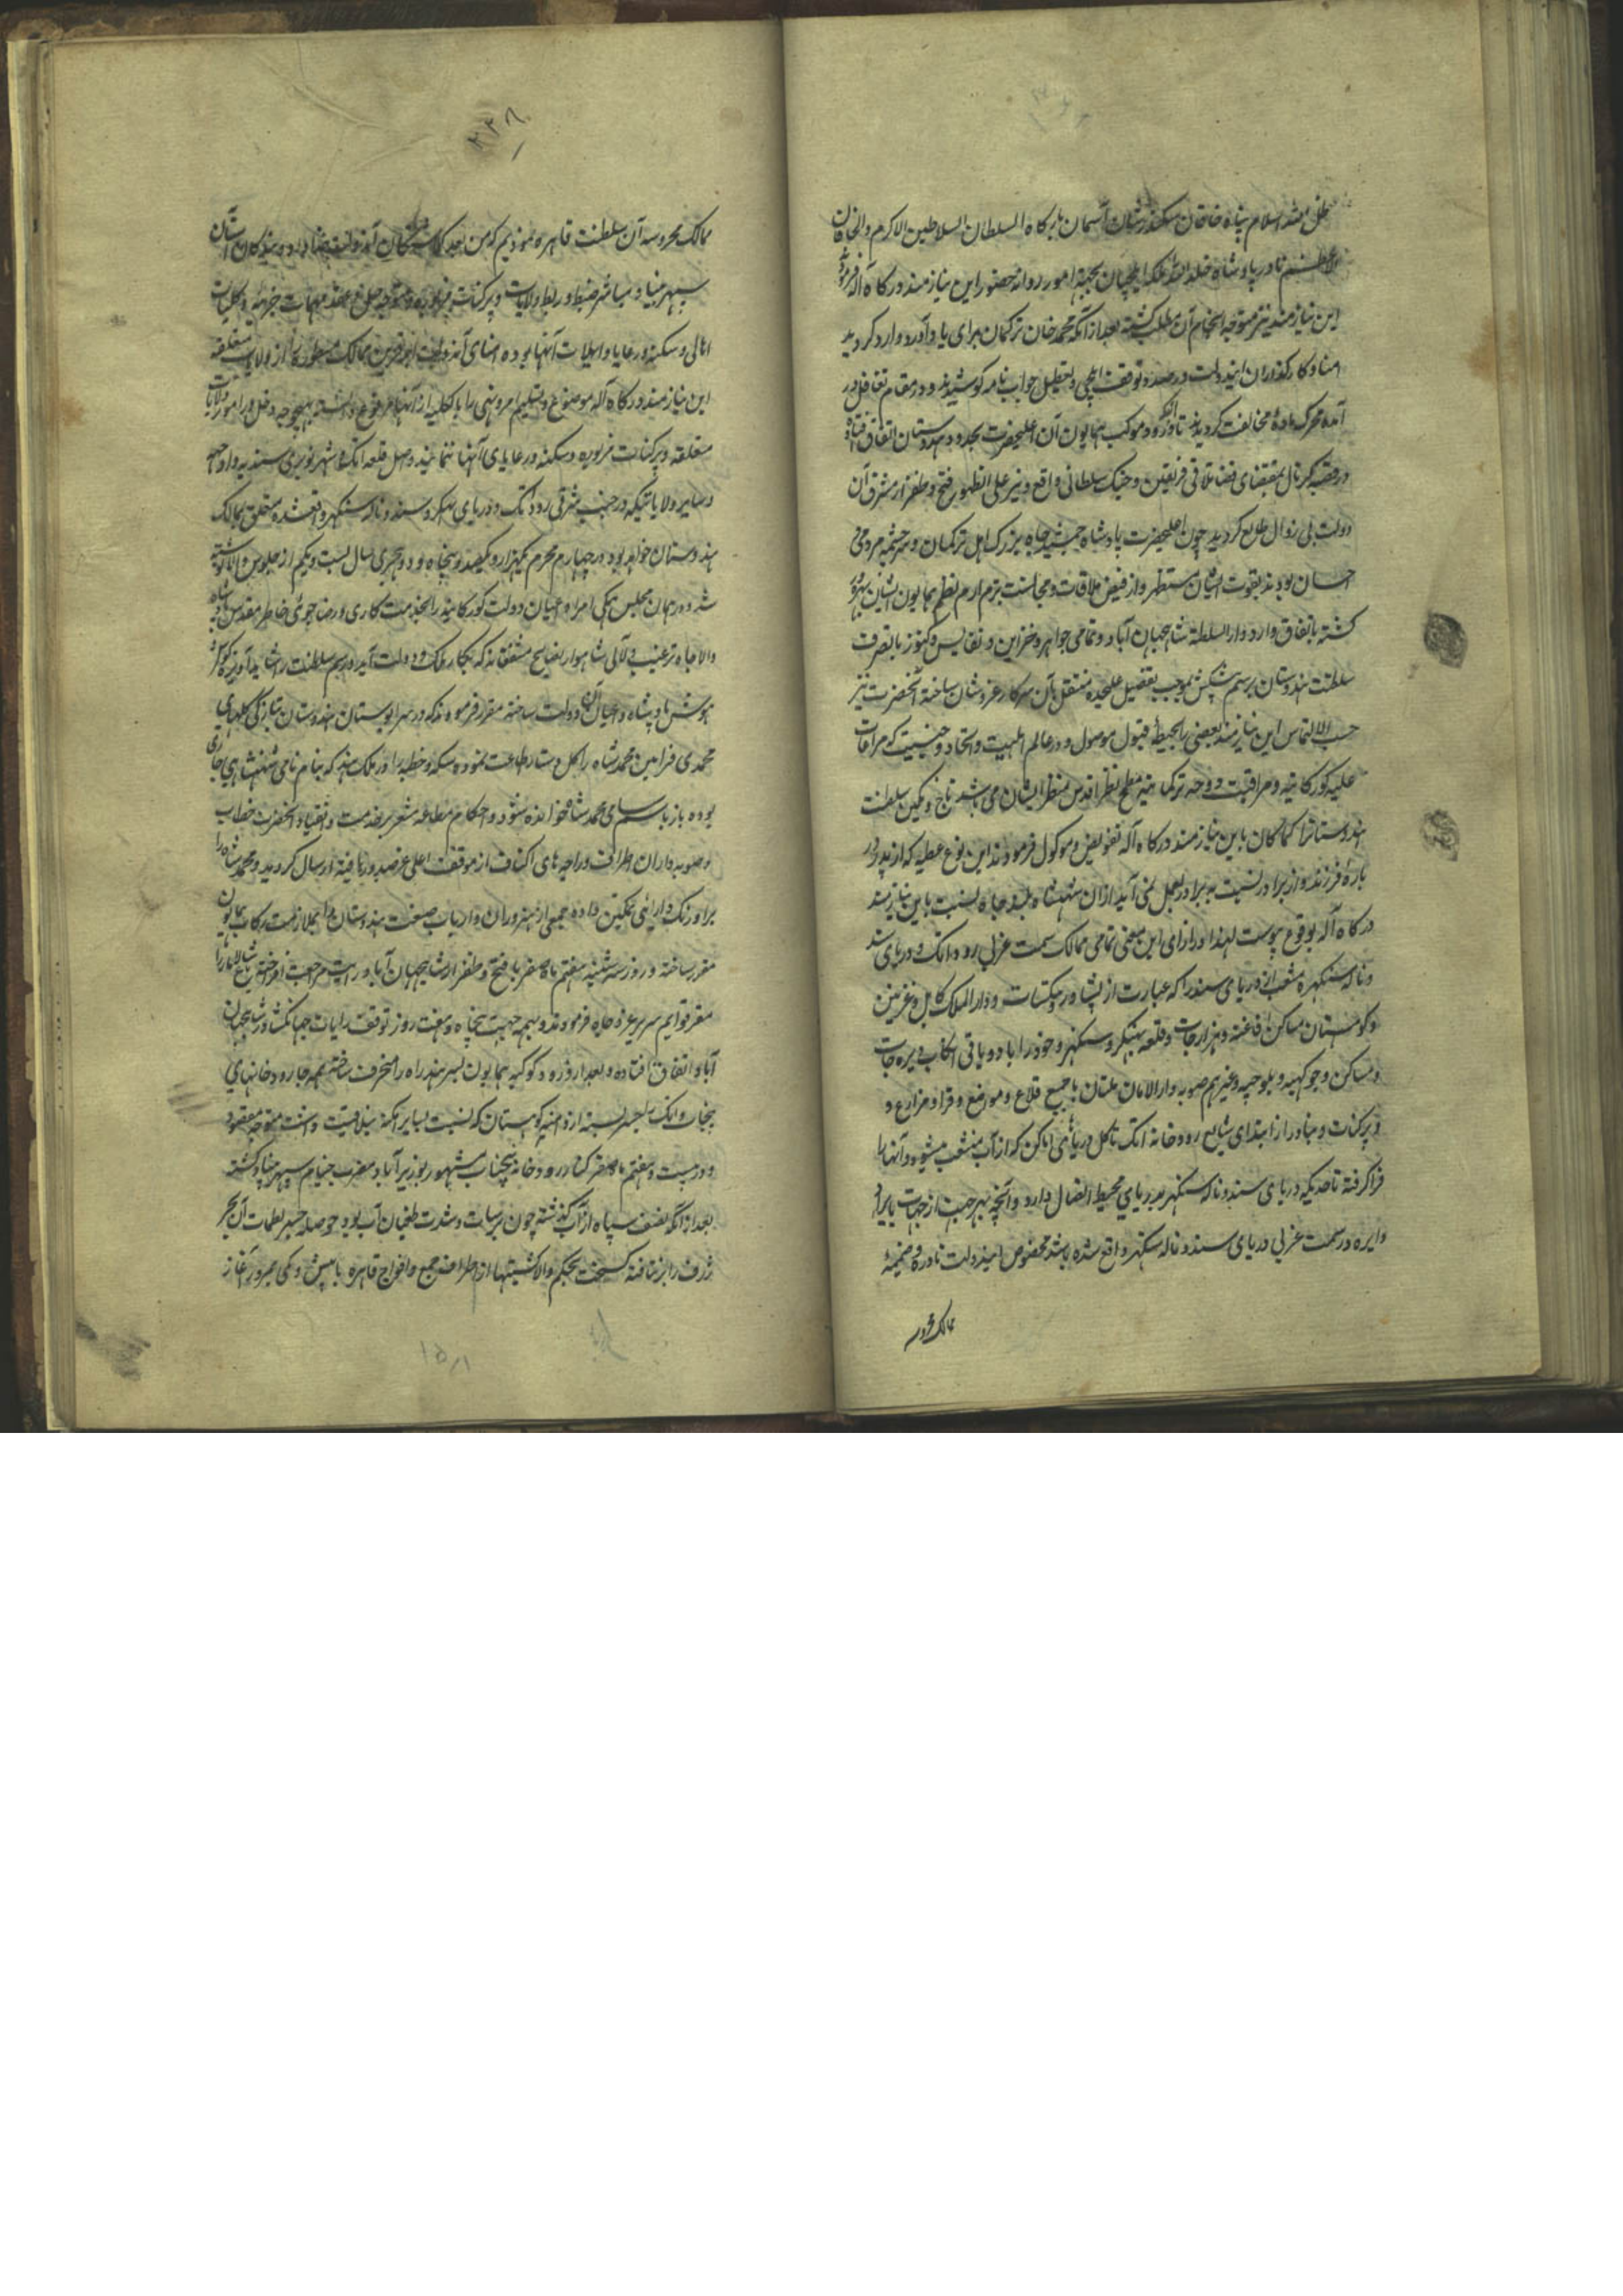 ظل الله اسلام پناه خاقان سکندر شان آسمان بارگاه السلطان السلاطین الاکرم والخاقان
الاعظم نادر پادشاه خلد الله ملکه ایلچیان بجهة امور روانه حضور این نیازمند درگاه آله فرموده
این نیازمند نیز متوجه انجام آن مطلب کشته بعد از آنکه محمد خان ترکمان برای یادآور وارد کردید
امنا و کارکذاران ایندولت در صدد توقف ایلچی و تعطیل جواب نامه کوشیدند و در مقام تغافل در
آمده محرک ماده مخالفت کردیدند تا آنکه ورود موکب همایون آن اعلیحضرت بحدود هندوستان اتفاق افتاد
در قصبه کرنال بمقتضای قضا تلاقی فریقین و جنک سلطانی واقع و نیر علی الظهور فتح و ظفر از مشرق آن
دولت بی زوال طلوع کردید چون اعلیحضرت پادشاه جمشید جاه بزرک اهل ترکمان و سرچشمه مردمی
احسان بودند بقوت ایشان مستظهر و از فیض ملاقات و مجالست بزم ارم نظم همایون ایشان بهره‌ور
کشته باتفاق وارد دارالسلطنة شاهجهان آباد و تمامی جواهر و خزاین و نفایس و کنوز بالتصرف
سلطنت هندوستان برسم پیشکش بموجب تفصیل علیحده منتقل بآن سرکار عز و شان ساخته آنحضرت نیز
حسب الالتماس این نیازمند بعضی را بحیطه قبول موصول و در عالم ایلیت و اتحاد و جنسیت که مراعات
علیه کورکانیه و مراقبت دوحه ترکمانیه مطمح نظر اقدس منظر ایشان می باشد تاج و نکین سلطنت
هندوستانرا کماکان باین نیازمند درگاه آله تفویض و موکول فرمودند این نوع عطیه که از پدر در
باره فرزند و از برادر نسبت به برادر بعمل نمی آید از آن شهنشاه جم جاه نسبت باین نیازمند
درگاه آله بوقوع پیوست لهذا در ازای این معنی تمامی ممالک سمت غربی رود اتک و دریای سند
و ناله سنکهره منشعب از دریای سند را که عبارت از پشاور و بنکشات و دارالملک کابل و غزنین
و کوهستان مساکن افاغنه و هزارجات و قلعه بهکر و سنکهر و خود راباد و باقی الکاب دیره جات
و مساکن و جوکهیه و بلوچیه و غیرهم صوبه دارالامان ملتان با جمیع قلاع و مواضع و قرا و مزارع و
و پرکنات و بنادر از ابتدای شایع رودخانه اتک تا کل دریا‌های اماکن که از آب منشعب میشود و آنها را
فرا کرفته تا حدیکه دریای سند و ناله سنکهر بدریای محیط اتصال دارد و آنچه بهر جهت از جهات
دایره در سمت غربی دریای سند و ناله سنکهر واقع شده باشد مخصوص ایندولت نادره و ضمیمه
ممالک محروسه
۳۳۸
ممالک محروسه آن سلطنت قاهره نمودیم که من بعد کماشتکان آندولت
سپهر بنیاد مباشر ضبط و ربط ولایات و پرکنات مزبوره و متوجه حل و عقد مهمات جزئیه و کلیات
اهالی و سکنه و رعایا و ایلات آنها بوده امنای آندولت
این نیازمند درگاه آله موضوع و تسلیم امر و نهی را بالکلیه از آنها مرفوع دانسته بهیچوجه دخل در امور ولایات
متعلقه و پرکنات مزبوره و سکنه و رعایای آنها ننمایند و اصل قلعه اتک
و سایر ولایاتیکه در جنب شرقی رود اتک و دریای بهکر و سند و ناله سنکهر واقعشده متعلق بممالک
هندوستان خواهد بود در چهارم محرم یکهزار و یکصد و پنجاه و دو هجری سال بیست و یکم از جلوس والا نوشته
شد و در همان مجلس همکی امراء و اعیان دولت کورکانیه را بخدمت کاری و رضاجوئی خاطر مقدس پادشاه
والاجاه ترغیب و لآلی شاهوار نصایح مشفقانه که بکار ملک و دولت آید و رسم سلطنت را شاید آویزه کوش
هوش پادشاه و اعیان آن دولت ساخته مقرر فرمودند که در سرابوستان هندوستان بتازکی کلهای
محمدی فرامین محمد شاه را کل دستار طاعت نموده سکه و خطبه را در ملک هند که بنام نامی شهنشاهی جاری
بوده باز باسم سامی محمد شاه خوانده شود و احکام مطاعه مشعر بر خدمت و انقیاد آنحضرت خطاب
بصوبه داران اطراف و راجه های اکناف از موقف اعلی عز صدور یافته ارسال کردید و محمد شاه را
بر اورنک دارائی تمکین داده جمعی از هنروران و ارباب صنعت هندوستان را بملازمت رکاب همایون
مقرر ساخته و روز سه شنبه هفتم ماه صفر با فتح و ظفر از شاهجهان آباد رایت مراجعت افراخته باغ شالامار را
مقر قوایم سریر عز و جاه فرمودند و بهمه جهت پنجاه و هفت روز توقف رایات جهانکشا در شاهجهان
آباد اتفاق افتاده و بعد از ورود کوکبه همایون بسرهند راه را منحرف ساخته همه جا رودخانهای
پنجاب و اتک را بجسر بسته از دامنه کوهستان که نسبت بسایر امکنه ییلاقیت داشت متوجه مقصود
و در بیست و هفتم ماه صفر کنار رودخانه چناب مشهور بوزیرآباد مضرب خیام سپهر احتشام کشته
بعد از آنکه نصف سپاه از آب کذشته چون برسات و شدت طغیان آب بود حوصله جسر لطمات آن بحر
ژرف را برنتافته کسیخت بحکم والا کشتیها از اطراف جمع و افواج قاهره بامبش و کمی بمرور آغاز
۱۵۱